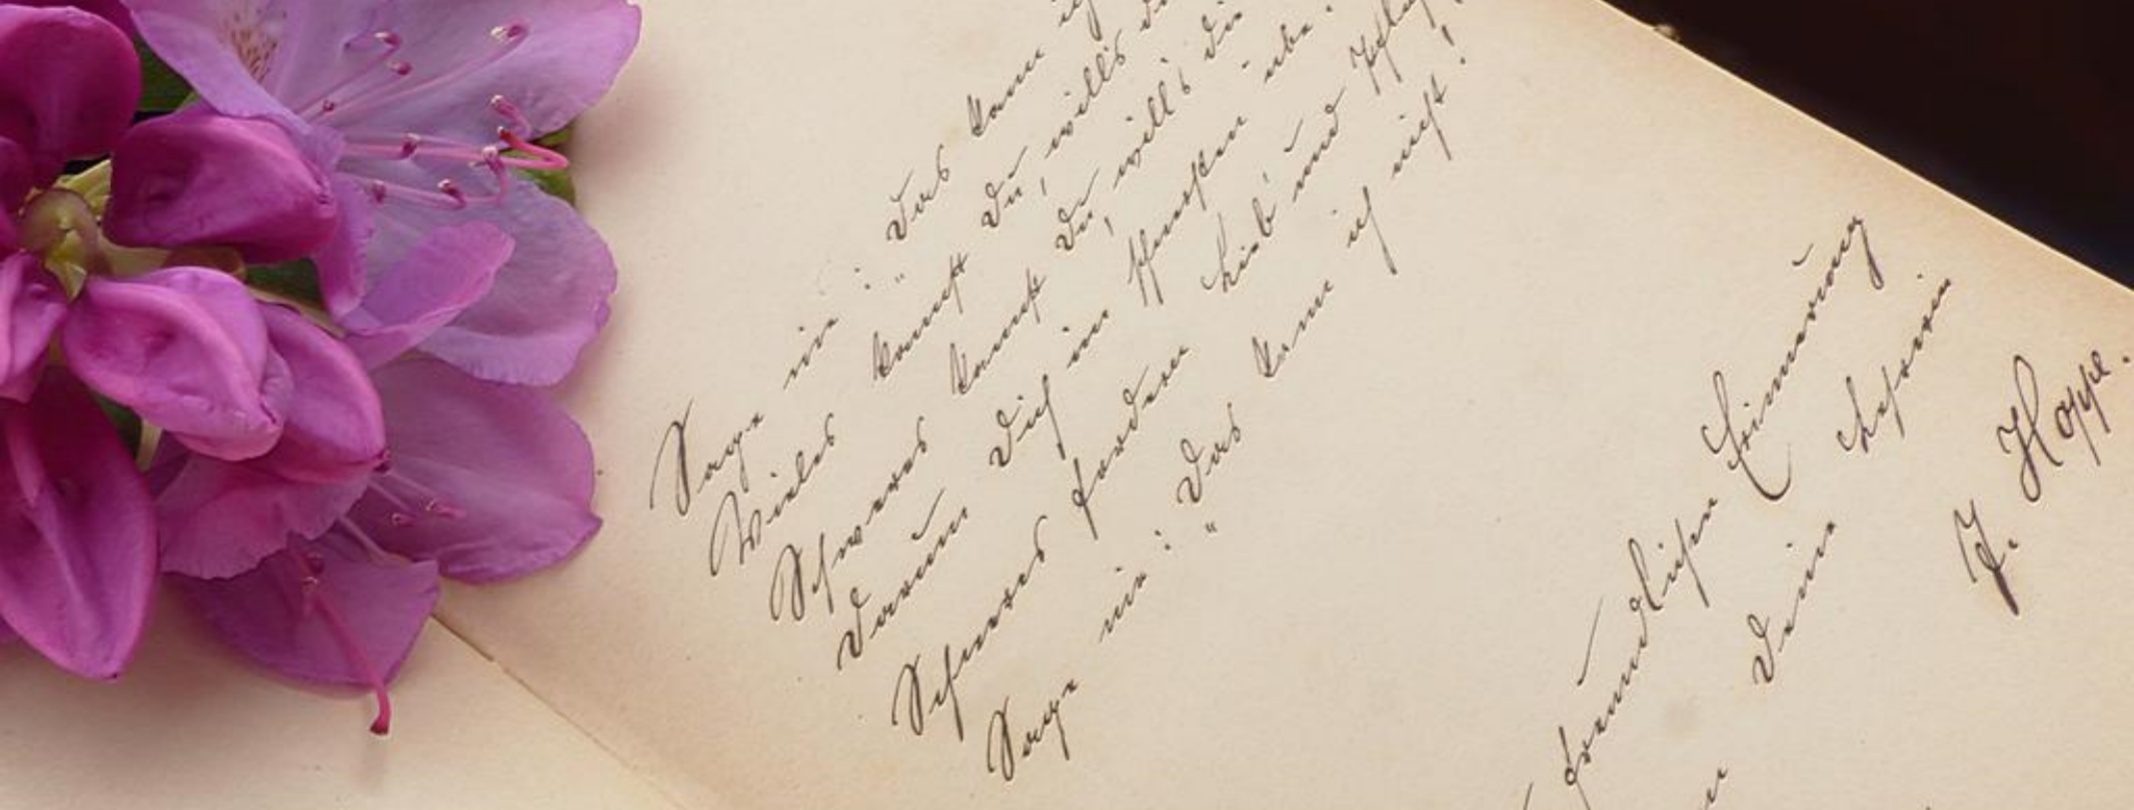 Sage nie: „Das kann ich
Vieles kannst Du, will's
Schweres kannst Du, will's die
Darum Dich im Schwersten übe.
Schweres fordern Lieb' und
Sage nie: „Das kann ich nicht!
freundlichen Erinnerung
Deine Lehrerin
J. Hoppe.